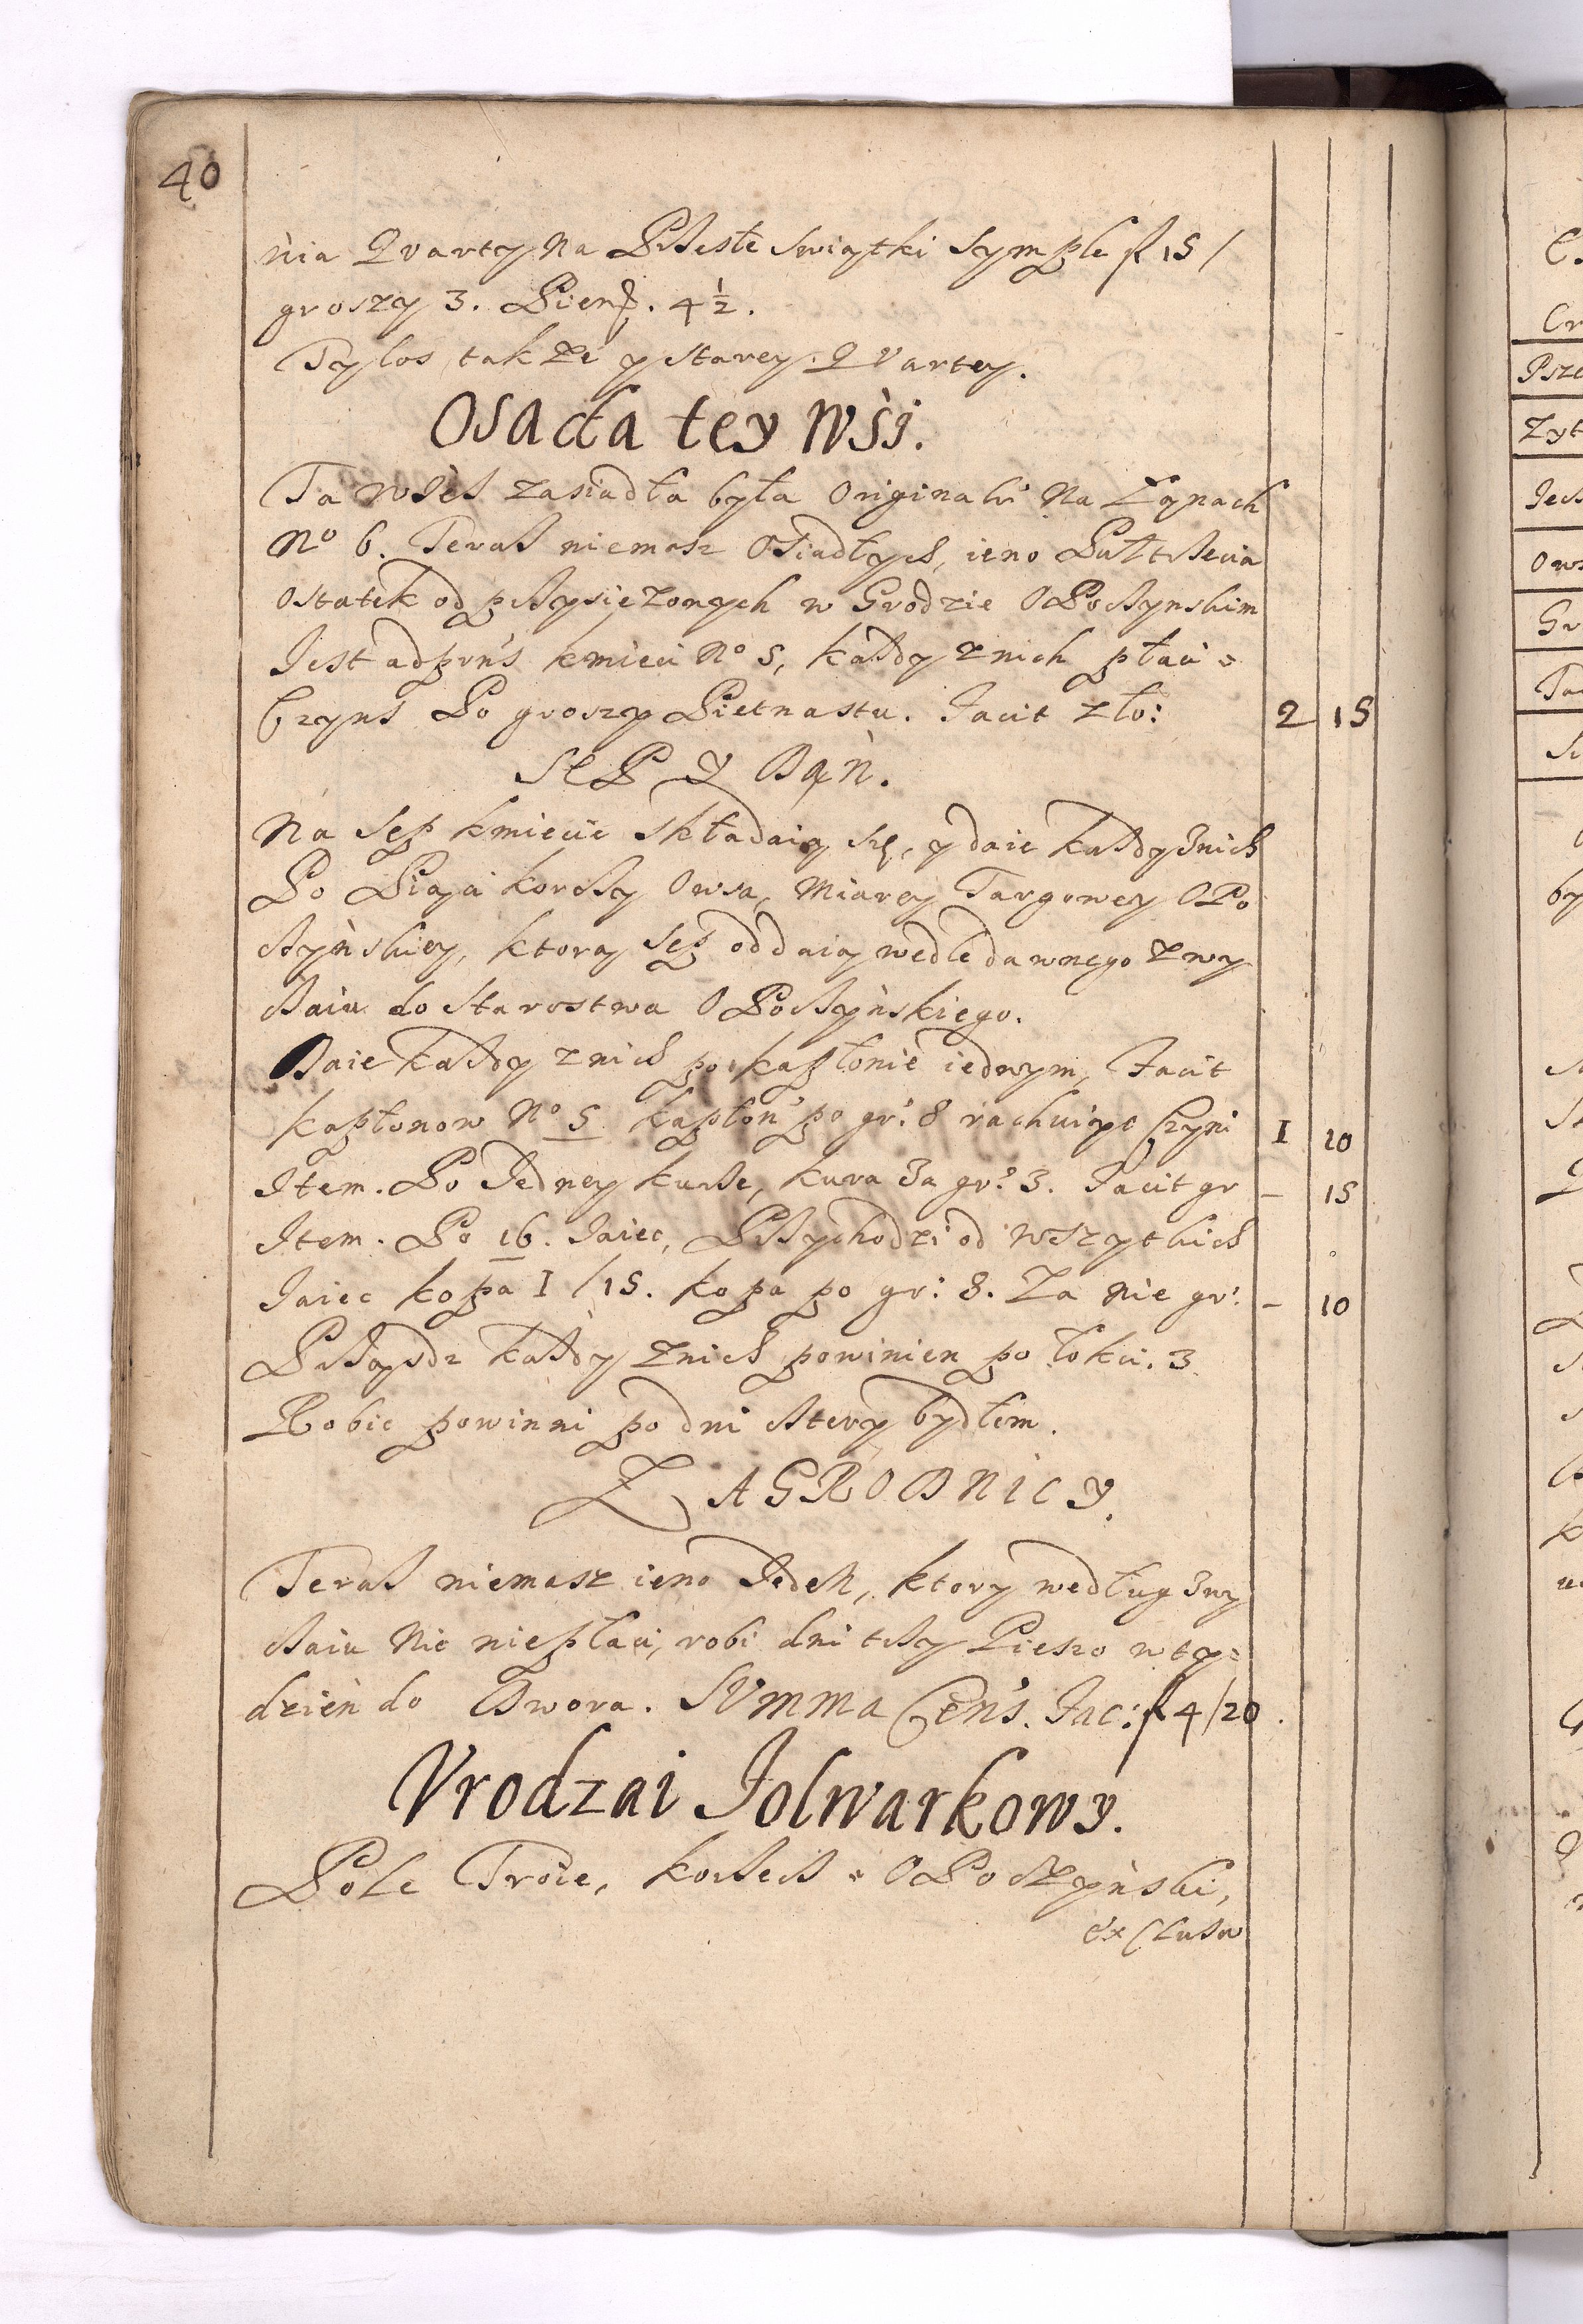 40
nia Qvarty na Przeszłe swiątki symple f 15/
groszy 3. Pien. 4½.
Tylos także y starey Qvarty.
Osada tey Wśi.
Ta wies zasiadła była Originali na Łanach
No 6. Teraz niemasz Osiadłych, ieno Pułtrzecia
Ostatek od przysiężonych w Grodzie OPoczynskim
Jest adpręns kmieci No 5, każdy znich płaci
Czyns Po groszy Pietnastu. Facit zło: 2 15
SEP Y DAŃ.
Na sep kmiecie składaią się, y daie każdy znich
Po Piąci korczy Owsa, Miarey Targowey OPo
czyńskiey, ktory sep oddaią wedle dawnego zwy
czaiu do Starostwa OPoczyńskiego.
Daie każdy znich po kapłonie iednym, Facit
kapłonow No 5 kapłon po gr: 8 rachuiąc Czyni I 10
Item. Po Jedney kurze, kura za gr: 3. Facit gr – 15
Item. Po 16. Jaiec, Przychodzi od wszytkich
Jaiec kopa I /15. kopa po gr: 8. Za nie gr: – 10
Prząydz każdy znich powinien po łokci. 3
Robic powinni po dni cztery bydłem.
ZAGRODNICY.
Teraz niemasz ieno Jeden, ktory według zwy
czaiu Nic niepłaci, robi dni trzy Pieszo w ty=
dzień do Dwora. SUmma Cens. Fac: f 4/20.
Vrodzai Folwarkowy.
Pole Troie, korzecz OPoczyński,